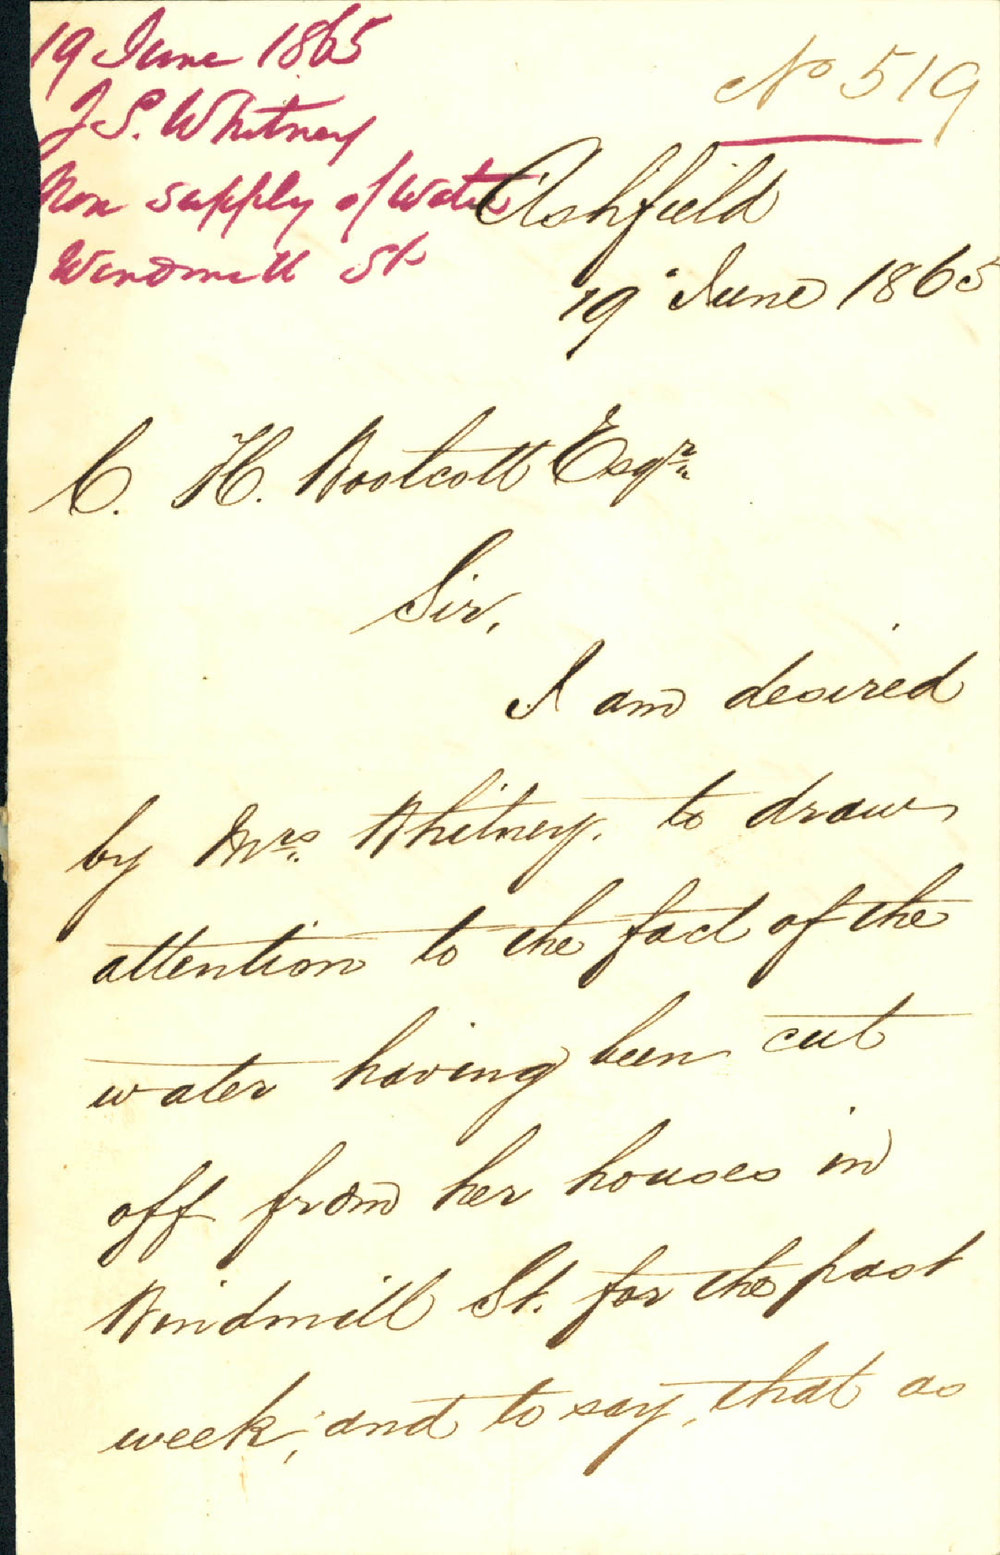 19 June 1865
J S. Whitney
Non supply of Water
Windmill St
No 519
Ashfield
19 June 1865
C. H. Woolcott Esqr.
Sir,
I am desired
by Mrs. Whitney. to draw
attention to the fact of the
water having been cut
off from her houses in
Windmill St. for the past
week; and to say, that as